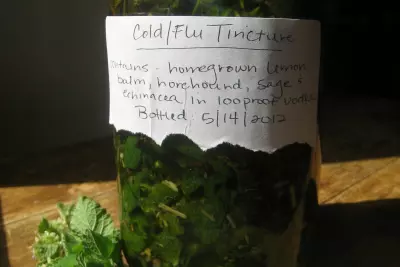 Cold/Flu Tincture
Contains - homegrown lemon
balm, horehound, sage &
echinacea in 100proof vodka
Bottled: 5/14/2012